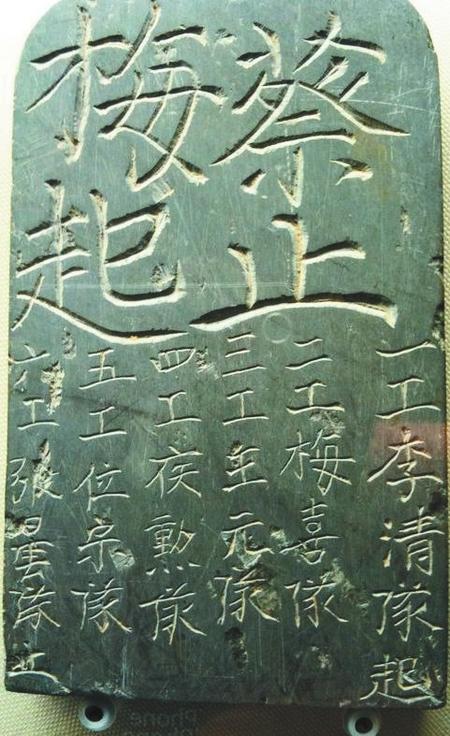 蔡止
梅起
一工李清隊起
二工梅喜隊
三工年元隊
四工侯勲隊
五工位宗隊
六工張隊止